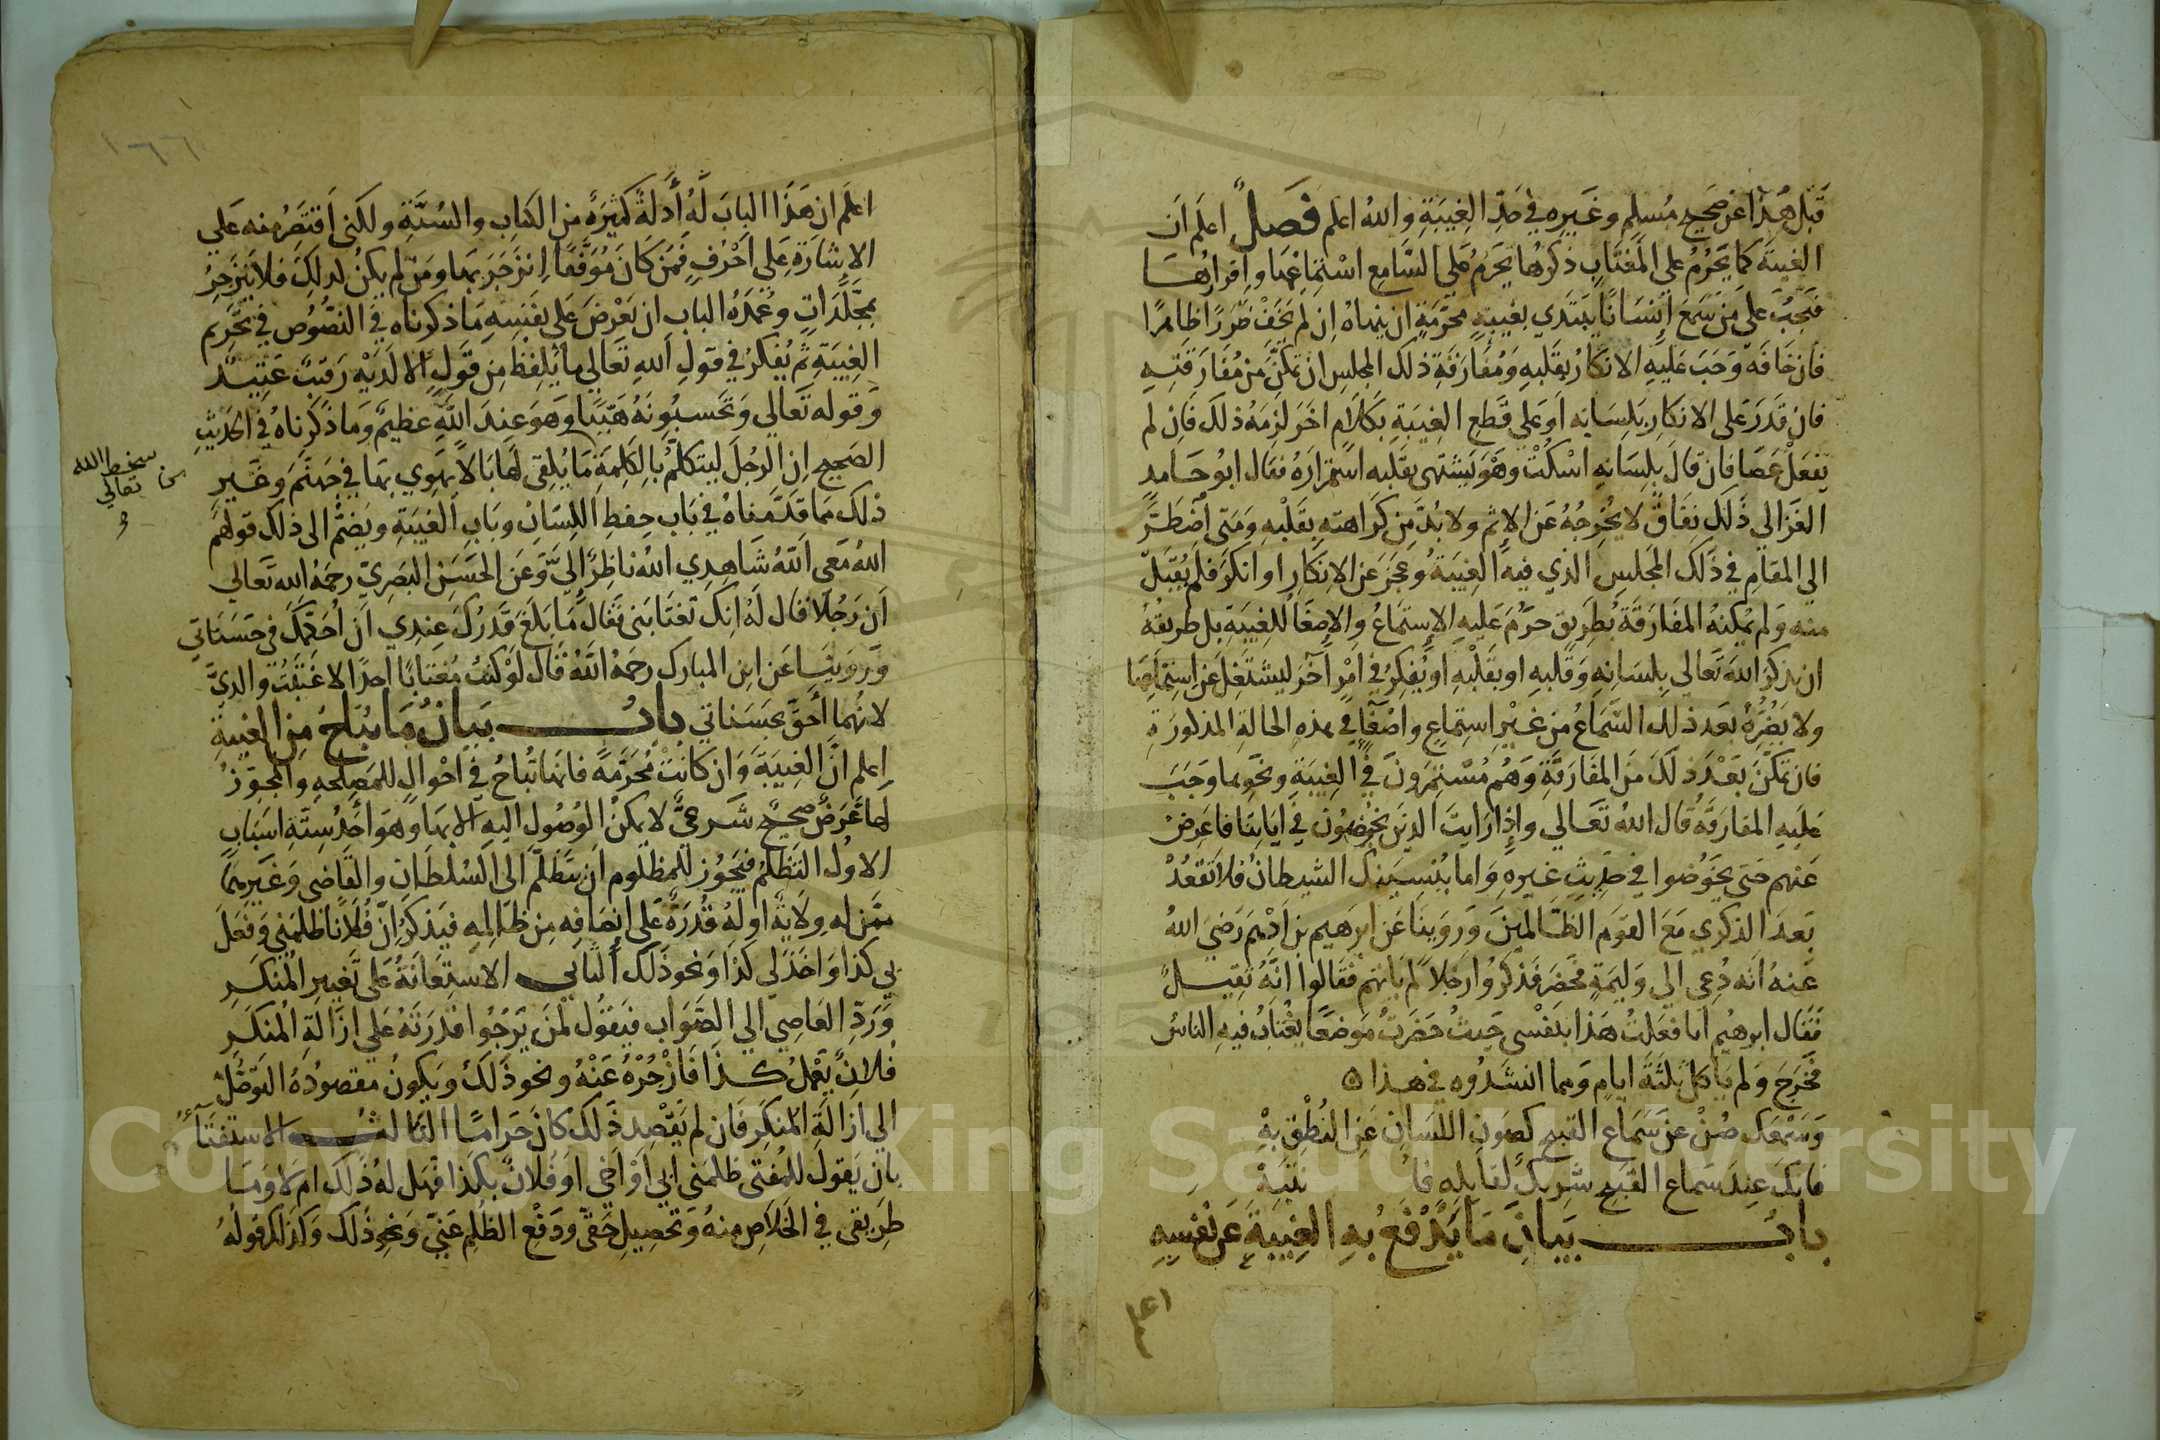 قبل هذا عن صحيح مسلم وغيره في حد الغيبة والله اعلم فصل اعلم ان
الغيبة كما يحرم علي المغتاب ذكرها يحرم علي السامع استماعها واقرارها
فيجب علي من سمع انسانا يبتدي بغيبة محرمة ان ينهاه ان لم يخف ضررا ظاهرا
فان خافه وجب عليه الانكار بقلبه ومفارقة ذلك المجلس ان تمكن من مفارقته
فان قدر علي الانكار بلسانه او علي قطع الغيبة بكلام اخر لزمه ذلك فان لم
يفعل عصا فان قال بلسانه اسكت وهو يشتهي بقلبه استمراره فقال ابو حامد
الغزالي ذلك نفاق لا يخرجه عن الاثم ولا بد من كراهته بقلبه ومتي اضطر
الي المقام في ذلك المجلس الذي فيه الغيبة وعجز عن الانكار او انكر فلم يقبل
منه ولم يمكنه المفارقة بطريق حرم عليه الاستماع والاصغا للغيبة بل طريقه
ان يذكر الله تعالي بلسانه وقلبه او بقلبه او يفكر في امر آخر ليشتغل عن استماعها
ولا يضره بعد ذلك السماع من غير استماع واصغآء في هذه الحالة المذكورة
فان تمكن بعد ذلك من المفارقة وهم مستمرون في الغيبة ونحوها وجب
عليه المفارقة قال الله تعالي واذا رايت الذين يخوضون في اياتنا فاعرض
عنهم حتي يخوضوا في حديث غيره واما ينسينك الشيطان فلا تقعد
بعد الذكري مع القوم الظالمين وروينا عن ابرهيم بن ادهم رضي الله
عنه انه دعي الي وليمة فحضر فذكروا رجلا لم ياتهم فقالوا انه ثقيل
فقال ابرهيم انا فعلت هذا بنفسي حيث حضرت موضعا يغتاب فيه الناس
فخرج ولم ياكل ثلثة ايام ومما انشدوه في هذا ه
وسمعك صن عن سماع القبيح كصون اللسان عن النطق به
فانك عند سماع القبيح شريك لقايله فانتبه
باب بيان ما يدفع به الغيبة عن نفسه
اعلم
١٦٦
اعلم ان هذا الباب له أدلة كثيرة من الكتاب والسنة ولكني اقتصر منه علي
الاشارة علي احرف فمن كان موفقا انزجر بها ومن لم يكن لذلك فلا ينزجر
بمجلدات وعمدة الباب ان يعرض علي نفسه ما ذكرناه في النصوص في تحريم
الغيبة ثم يفكر في قول الله تعالي ما يلفظ من قول الا لديه رقيب عتيد
وقوله تعالي وتحسبونه هينا وهو عند الله عظيم وما ذكرناه في الحديث
الصحيح ان الرجل ليتكلم بالكلمة ما يلقي لها بالا يهوي بها في جهنم وغير
من سخط الله
تعالي
ذلك مما قدمناه في باب حفظ اللسان وباب الغيبة ويضم الى ذلك قولهم
الله معي الله شاهدي الله ناظر إلي وعن الحسن البصري رحمه الله تعالي
ان رجلا قال له انك تغتابني فقال ما بلغ قدرك عندي ان احكمك في حسناتي
وروينا عن ابن المبارك رحمه الله قال لو كنت مغتابا احدا لاغتبت والدي
لانهما أحق بحسناتي باب بيان ما يباح من الغيبة
اعلم ان الغيبة وان كانت محرمة فانها تباح في احوال للمصلحه والمجوز
لها غرض صحيح شرعي لا يمكن الوصول اليه الا بها وهو احد ستة اسباب
الاول التظلم فيجوز للمظلوم ان يتظلم الى السلطان والقاضي وغيرهما
ممن له ولاية او له قدرة علي انصافه من ظالمه فيذكر ان فلانا ظلمني وفعل
بي كذا واخذ لي كذا ونحو ذلك الثاني الاستعانة على تغيير المنكر
ورد العاصي الي الصواب فيقول لمن يرجوا قدرته علي ازالة المنكر
فلان يعمل كذا فازجره عنه ونحو ذلك ويكون مقصوده التوصل
الي ازالة المنكر فان لم يقصد ذلك كان حراما الثالث الاستفتآء
بان يقول للمفتي ظلمني ابي او اخي او فلان بكذا فهل له ذلك ام لا وما
طريقي في الخلاص منه وتحصيل حقي ودفع الظلم عني ونحو ذلك وكذلك قوله